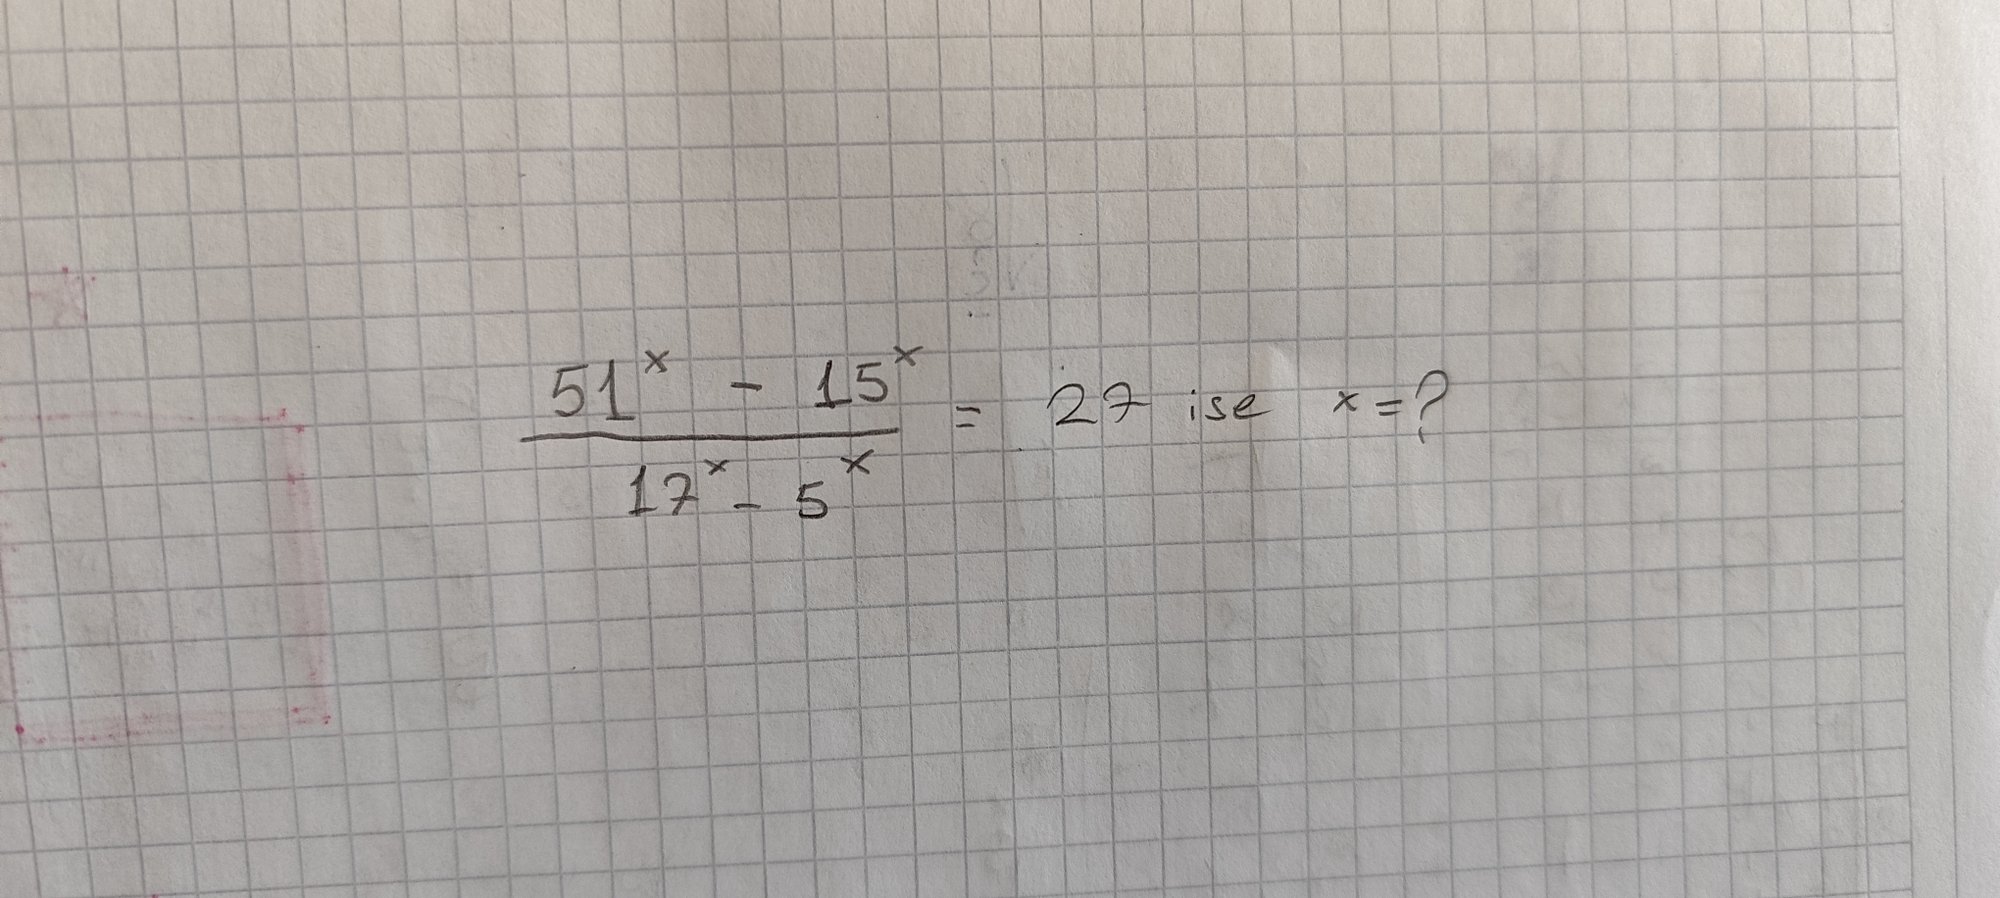 51ˣ - 15ˣ
17ˣ - 5ˣ = 27 ise x = ?